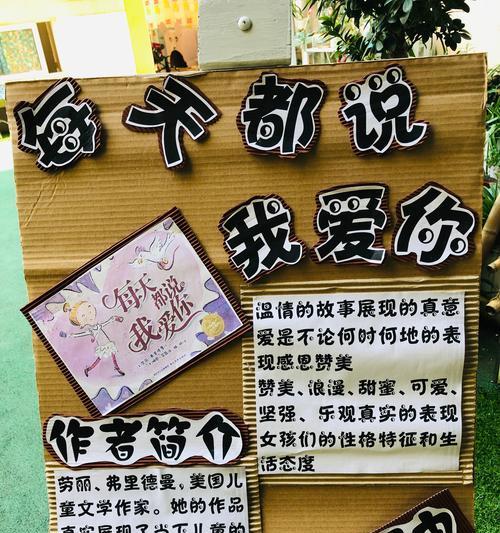 每天都说
我爱你
每天
都说
我爱你
温情的故事展现的真意
爱是不论何时何地的表
现感恩赞美
赞美、浪漫、甜蜜、可爱、
坚强、乐观真实的表现
女孩们的性格特征和生
活态度
作者简介
劳丽、弗里德曼,美国儿
童文学作家。她的作品
真实展现了当下儿童的